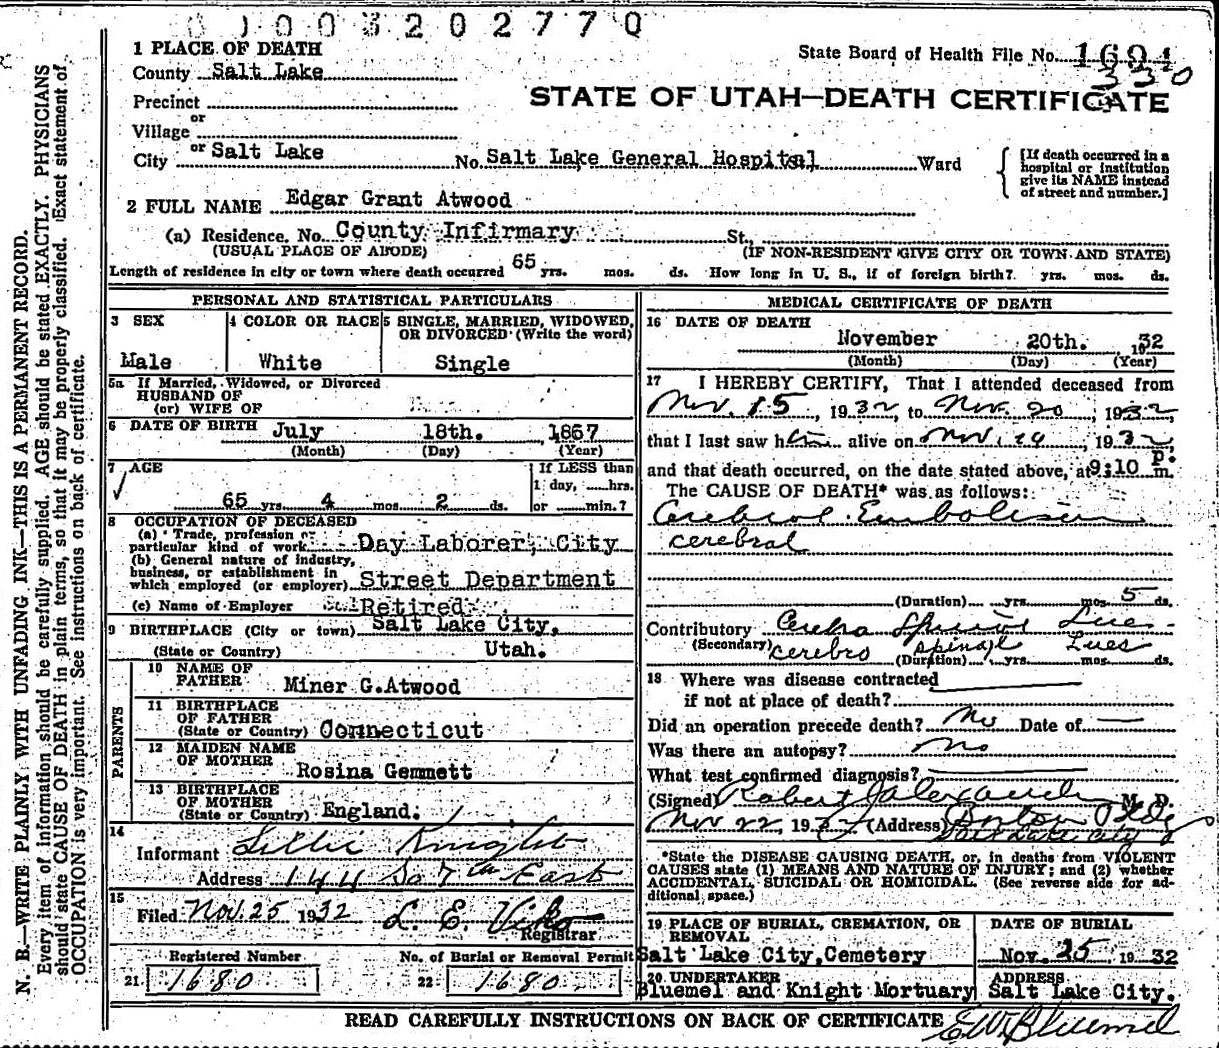 01003202770
1 PLACE OF DEATH
State Board of Health File No. 1694
330
County Salt Lake
STATE OF UTAH—DEATH CERTIFICATE
Precinct
or
Village
or
City Salt Lake No. Salt Lake General Hospital Ward
[If death occurred in a
hospital or institution
give its NAME instead
of street and number.]
2 FULL NAME Edgar Grant Atwood
(a) Residence, No. County Infirmary St.
(USUAL PLACE OF ABODE) (IF NON-RESIDENT GIVE CITY OR TOWN AND STATE)
Length of residence in city or town where death occurred 65 yrs. mos. ds. How long in U. S., if of foreign birth? yrs. mos. ds.
PERSONAL AND STATISTICAL PARTICULARS
3 SEX 4 COLOR OR RACE 5 SINGLE, MARRIED, WIDOWED,
OR DIVORCED (Write the word)
Male White Single
5a If Married, Widowed, or Divorced
HUSBAND OF
(or) WIFE OF
6 DATE OF BIRTH July 18th. 1867
(Month) (Day) (Year)
7 AGE If LESS than
1 day, hrs.
65 yrs. 4 mos. 2 ds. or min.?
8 OCCUPATION OF DECEASED
(a) Trade, profession or
particular kind of work Day Laborer, City
(b) General nature of industry,
business, or establishment in
which employed (or employer) Street Department
(c) Name of Employer Retired
9 BIRTHPLACE (City or town) Salt Lake City,
(State or Country) Utah.
PARENTS
10 NAME OF
FATHER Miner G. Atwood
11 BIRTHPLACE
OF FATHER
(State or Country) Connecticut
12 MAIDEN NAME
OF MOTHER Rosina Gemmett
13 BIRTHPLACE
OF MOTHER
(State or Country) England.
14
Informant Lillie Knight
Address 144 So 7th East
15
Filed Nov. 25 1932 L. E. Viko
Registrar
Registered Number No. of Burial or Removal Permit
21 1680 22 1680
MEDICAL CERTIFICATE OF DEATH
16 DATE OF DEATH
November 20th. 1932
(Month) (Day) (Year)
17 I HEREBY CERTIFY, That I attended deceased from
Nov. 15, 1932 to Nov. 20, 1932
that I last saw him alive on Nov. 19, 1932
and that death occurred, on the date stated above, at 9:10 p. m.
The CAUSE OF DEATH* was as follows:
Cerebral Embolism
cerebral
(Duration) yrs. mos. 5 ds.
Contributory Cerebro Spinal Lues
(Secondary) cerebro spinal Lues
(Duration) yrs. mos. ds.
18 Where was disease contracted
if not at place of death?
Did an operation precede death? No Date of
Was there an autopsy? No
What test confirmed diagnosis?
(Signed) Robert J Alexander M. D.
Nov 22, 1932 (Address) Boston Bldg
Salt Lake City
*State the DISEASE CAUSING DEATH, or, in deaths from VIOLENT
CAUSES state (1) MEANS AND NATURE OF INJURY; and (2) whether
ACCIDENTAL, SUICIDAL OR HOMICIDAL. (See reverse side for ad-
ditional space.)
19 PLACE OF BURIAL, CREMATION, OR
REMOVAL
Salt Lake City, Cemetery
DATE OF BURIAL
Nov. 25 1932
20 UNDERTAKER
Bluemel and Knight Mortuary
ADDRESS
Salt Lake City.
READ CAREFULLY INSTRUCTIONS ON BACK OF CERTIFICATE E W Bluemel
N. B.—WRITE PLAINLY WITH UNFADING INK—THIS IS A PERMANENT RECORD.
Every item of information should be carefully supplied. AGE should be stated EXACTLY. PHYSICIANS
should state CAUSE OF DEATH in plain terms, so that it may be properly classified. Exact statement of
OCCUPATION is very important. See instructions on back of certificate.